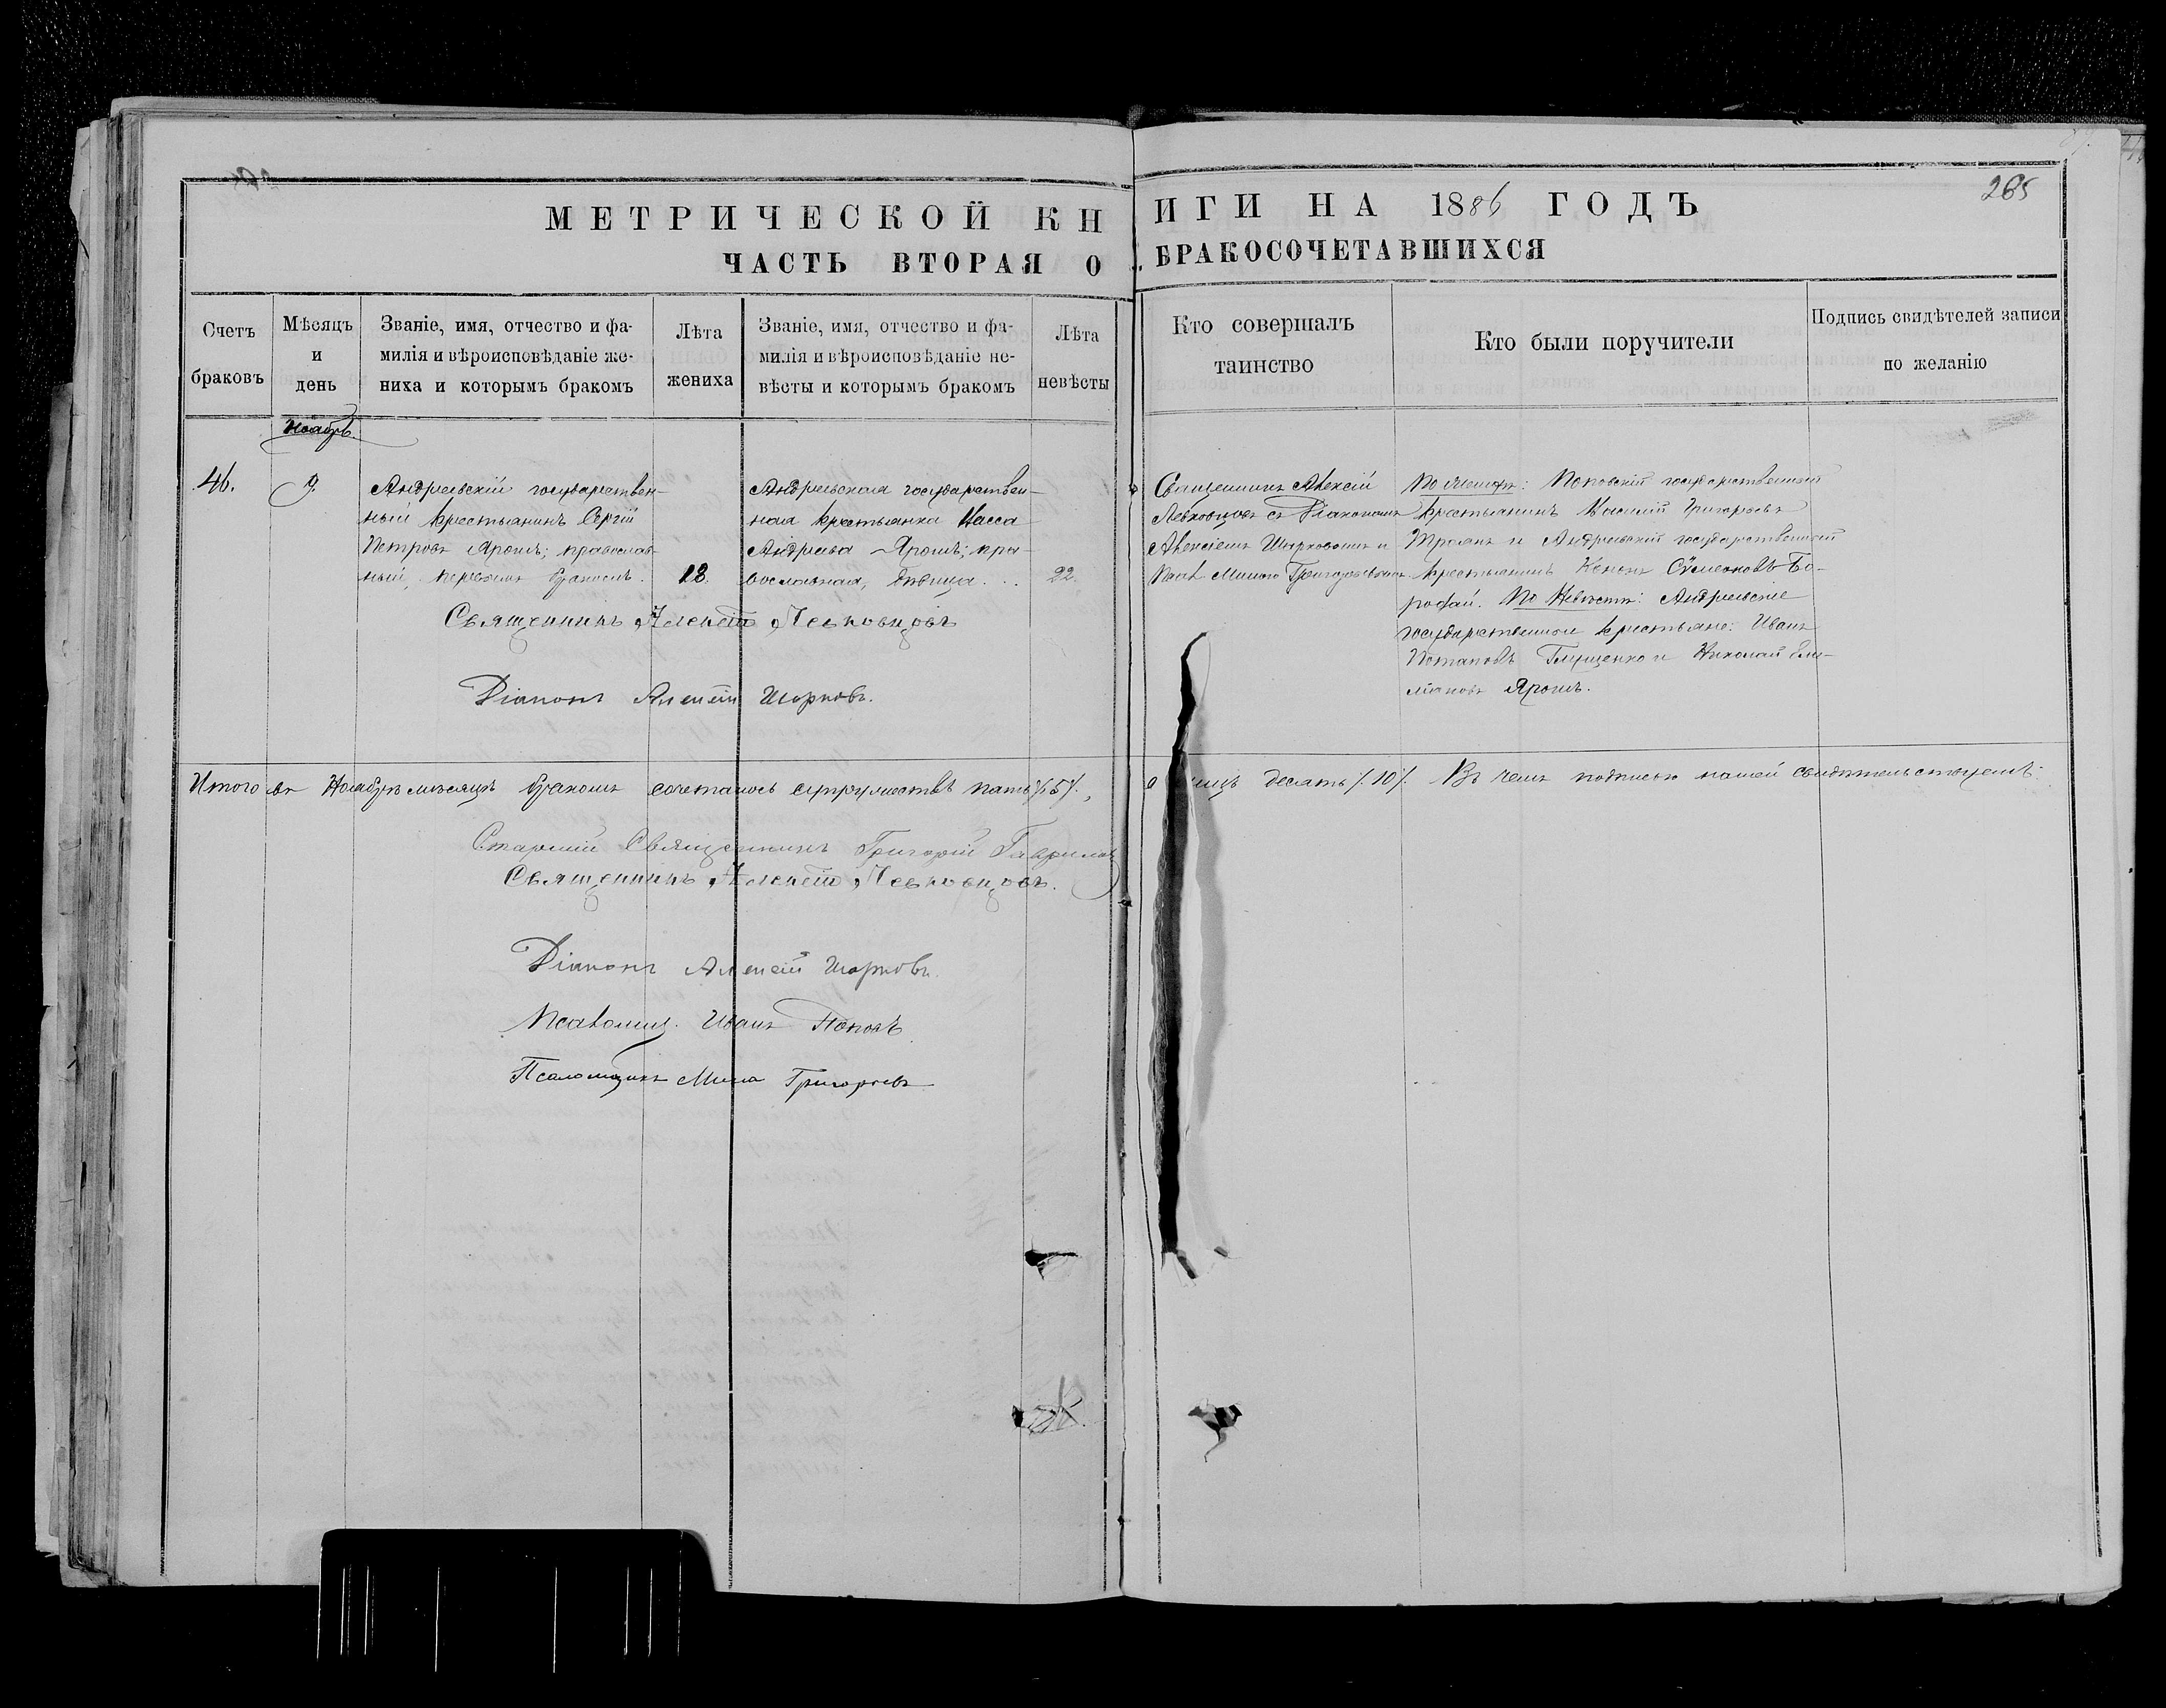 МЕТРИЧЕСКОЙ КНИГИ НА 1886 ГОДЪ
265
ЧАСТЬ ВТОРАЯ О БРАКОСОЧЕТАВШИХСЯ
Счетъ браковъ
Мѣсяцъ и день
Званіе, имя, отчество и фа-
милія и вѣроисповѣданіе же-
ниха и которымъ бракомъ
Лѣта жениха
Званіе, имя, отчество и фа-
милія и вѣроисповѣданіе не-
вѣсты и которымъ бракомъ
Лѣта невѣсты
Кто совершалъ
таинство
Кто были поручители
Подпись свидѣтелей записи
по желанію
Ноябрь
46.
9.
Андреевскій государствен-
ный крестьянинъ Сергій
Петровъ Ярошъ; православ-
ный, первымъ бракомъ.
18.
Андреевская государствен-
ная крестьянка Васса
Андреева Ярошъ; пра-
вославная, дѣвица...
22.
Священникъ Алексій
Левковцовъ съ Діакономъ
Алексіемъ Шорковымъ и
Псал. Миною Григоровымъ
По Женихѣ: Поповскій государственный
крестьянинъ Василій Григорьевъ
Троянъ и Андреевскій государственный
крестьянинъ Кононъ Сѵмеоновъ Бо-
родай. По Невѣстѣ: Андреевскіе
государственные крестьяне: Иванъ
Потаповъ Глущенко и Николай Еми-
ліановъ Ярошъ.
Священникъ Алексій Левковцовъ
Діаконъ Алексій Шорковъ.
Итого въ Ноябрѣ мѣсяцѣ бракомъ сочеталось супружествъ пять /.5/.,
а лицъ десять /.10/. Въ чемъ подписью нашей свидѣтельствуемъ:
Старшій Священникъ Григорій Гаврилов
Священникъ Алексій Левковцовъ.
Діаконъ Алексій Шорковъ.
Псаломщ. Иванъ Поповъ
Псаломщикъ Мина Григоровъ